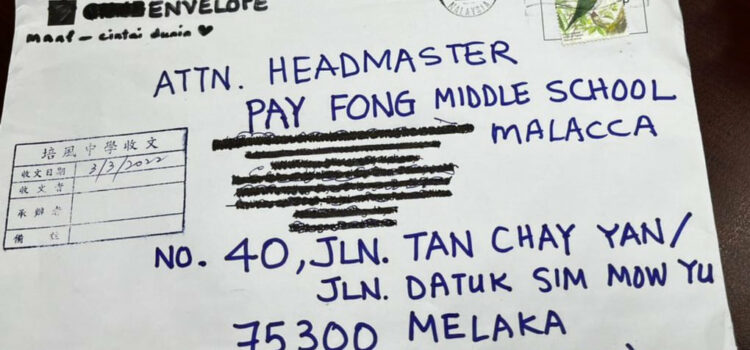 ENVELOPE
maaf - cintai dunia ♥
MALAYSIA
ATTN. HEADMASTER
PAY FONG MIDDLE SCHOOL
MALACCA
培風中學收文
收文日期 3/3/2022
收文者
承辦者
備註
NO. 40, JLN. TAN CHAY YAN/
JLN. DATUK SIM MOW YU
75300 MELAKA